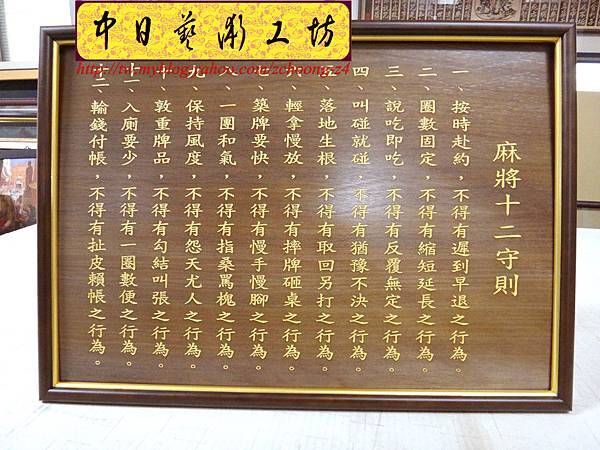 中日藝術工坊
http://tw.myblog.yahoo.com/zchoong.z4
麻將十二守則
一、按時赴約，不得有遲到早退之行為。
二、圈數固定，不得有縮短延長之行為。
三、說吃即吃，不得有反覆無定之行為。
四、叫碰就碰，不得有猶豫不決之行為。
落地生根，不得有取回另打之行為。
輕拿慢放，不得有摔牌砸桌之行為。
築牌要快，不得有慢手慢腳之行為。
一團和氣，不得有指桑罵槐之行為。
保持風度，不得有怨天尤人之行為。
敦重牌品，不得有勾結叫張之行為。
入廁要少，不得有一圈數便之行為。
輸錢付帳，不得有扯皮賴帳之行為。